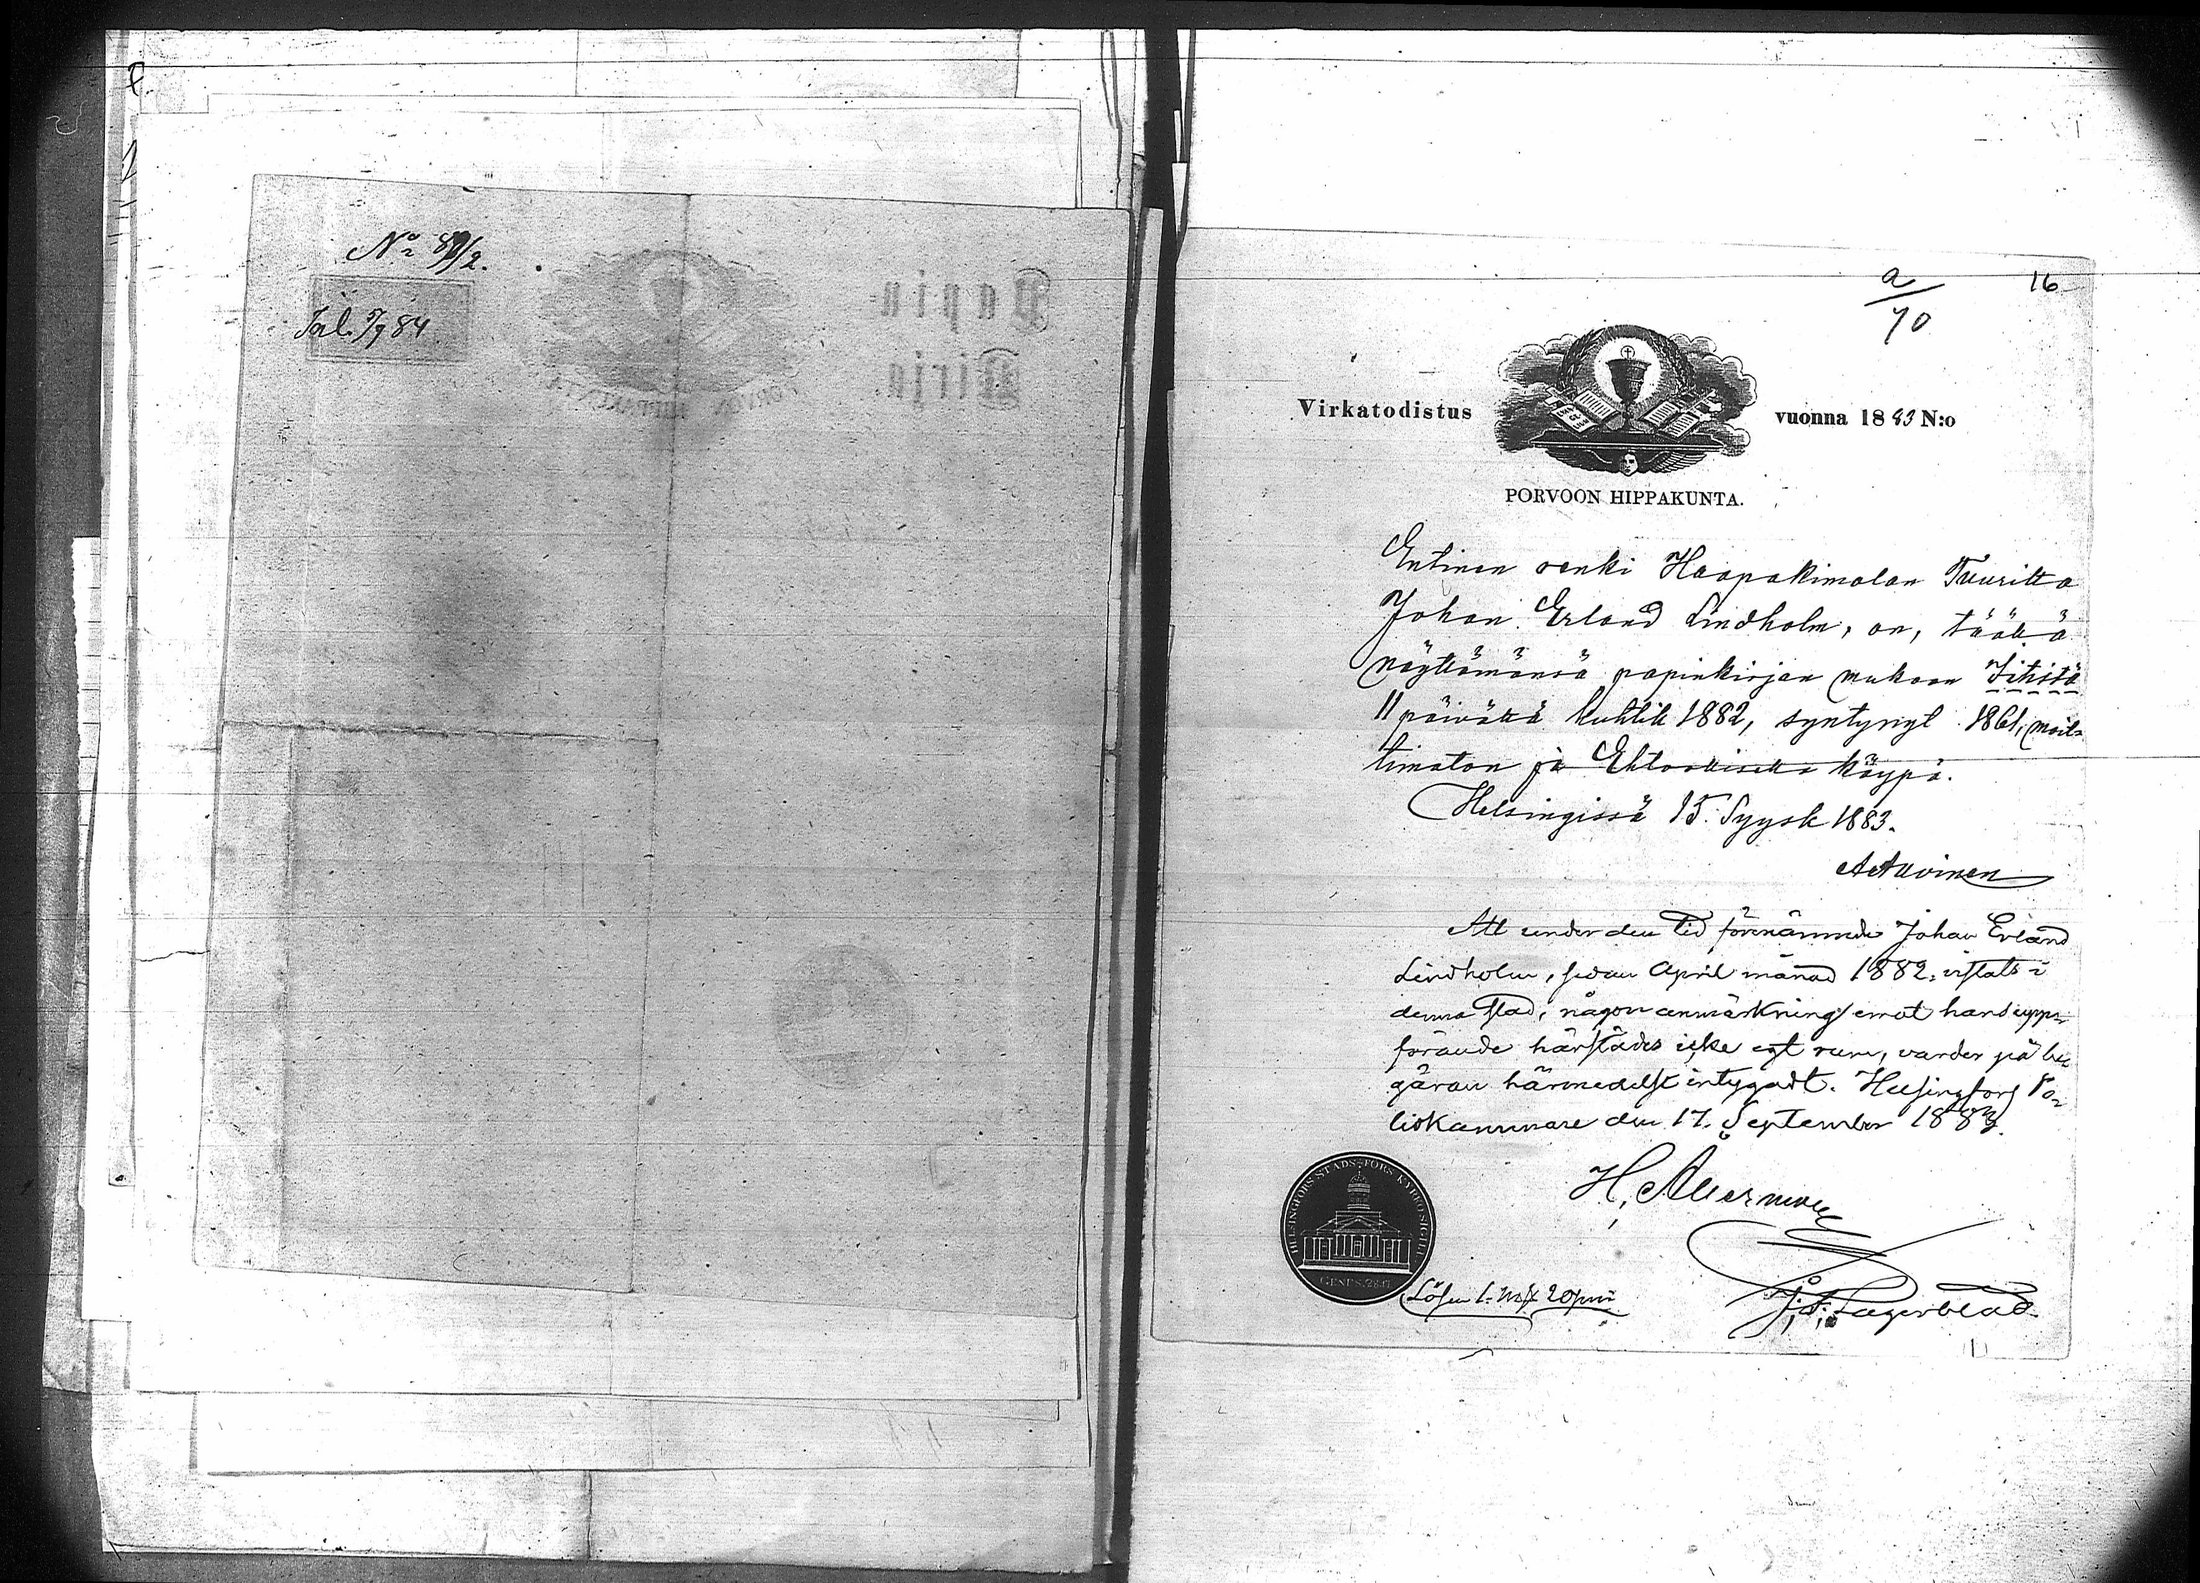 No 89/2.
Jal. 5/9 84
Papin
Kirja.
PORVOON HIPPAKUNTA
a/70
16
Virkatodistus vuonna 1883 N:o
PORVOON HIPPAKUNTA.
Entinen renki Haapakimolan Tuurilta
Johan Erland Lindholm, on, täällä
näyttämänsä papinkirjan mukaan Iitistä
11 päivältä huhtik 1882, syntynyt 1861, moit-
timaton ja Ehtoolliselle käypä.
Helsingissä 15. Syysk 1883.
Att under den tid förenämnde Johan Erland
Lindholm, sedan April månad 1882. vistats i
denna stad, någon anmärkning emot hans upp-
förande härstädes icke egt rum, varder på be-
gäran härmedelst intygadt. Helsingfors Po-
liskammare den 17. September 1883.
H. Åkerman
Lagerblad.
HELSINGFORS STADS FÖRS. KYRKOSIGILL
Lösen 1. mk 20 pni